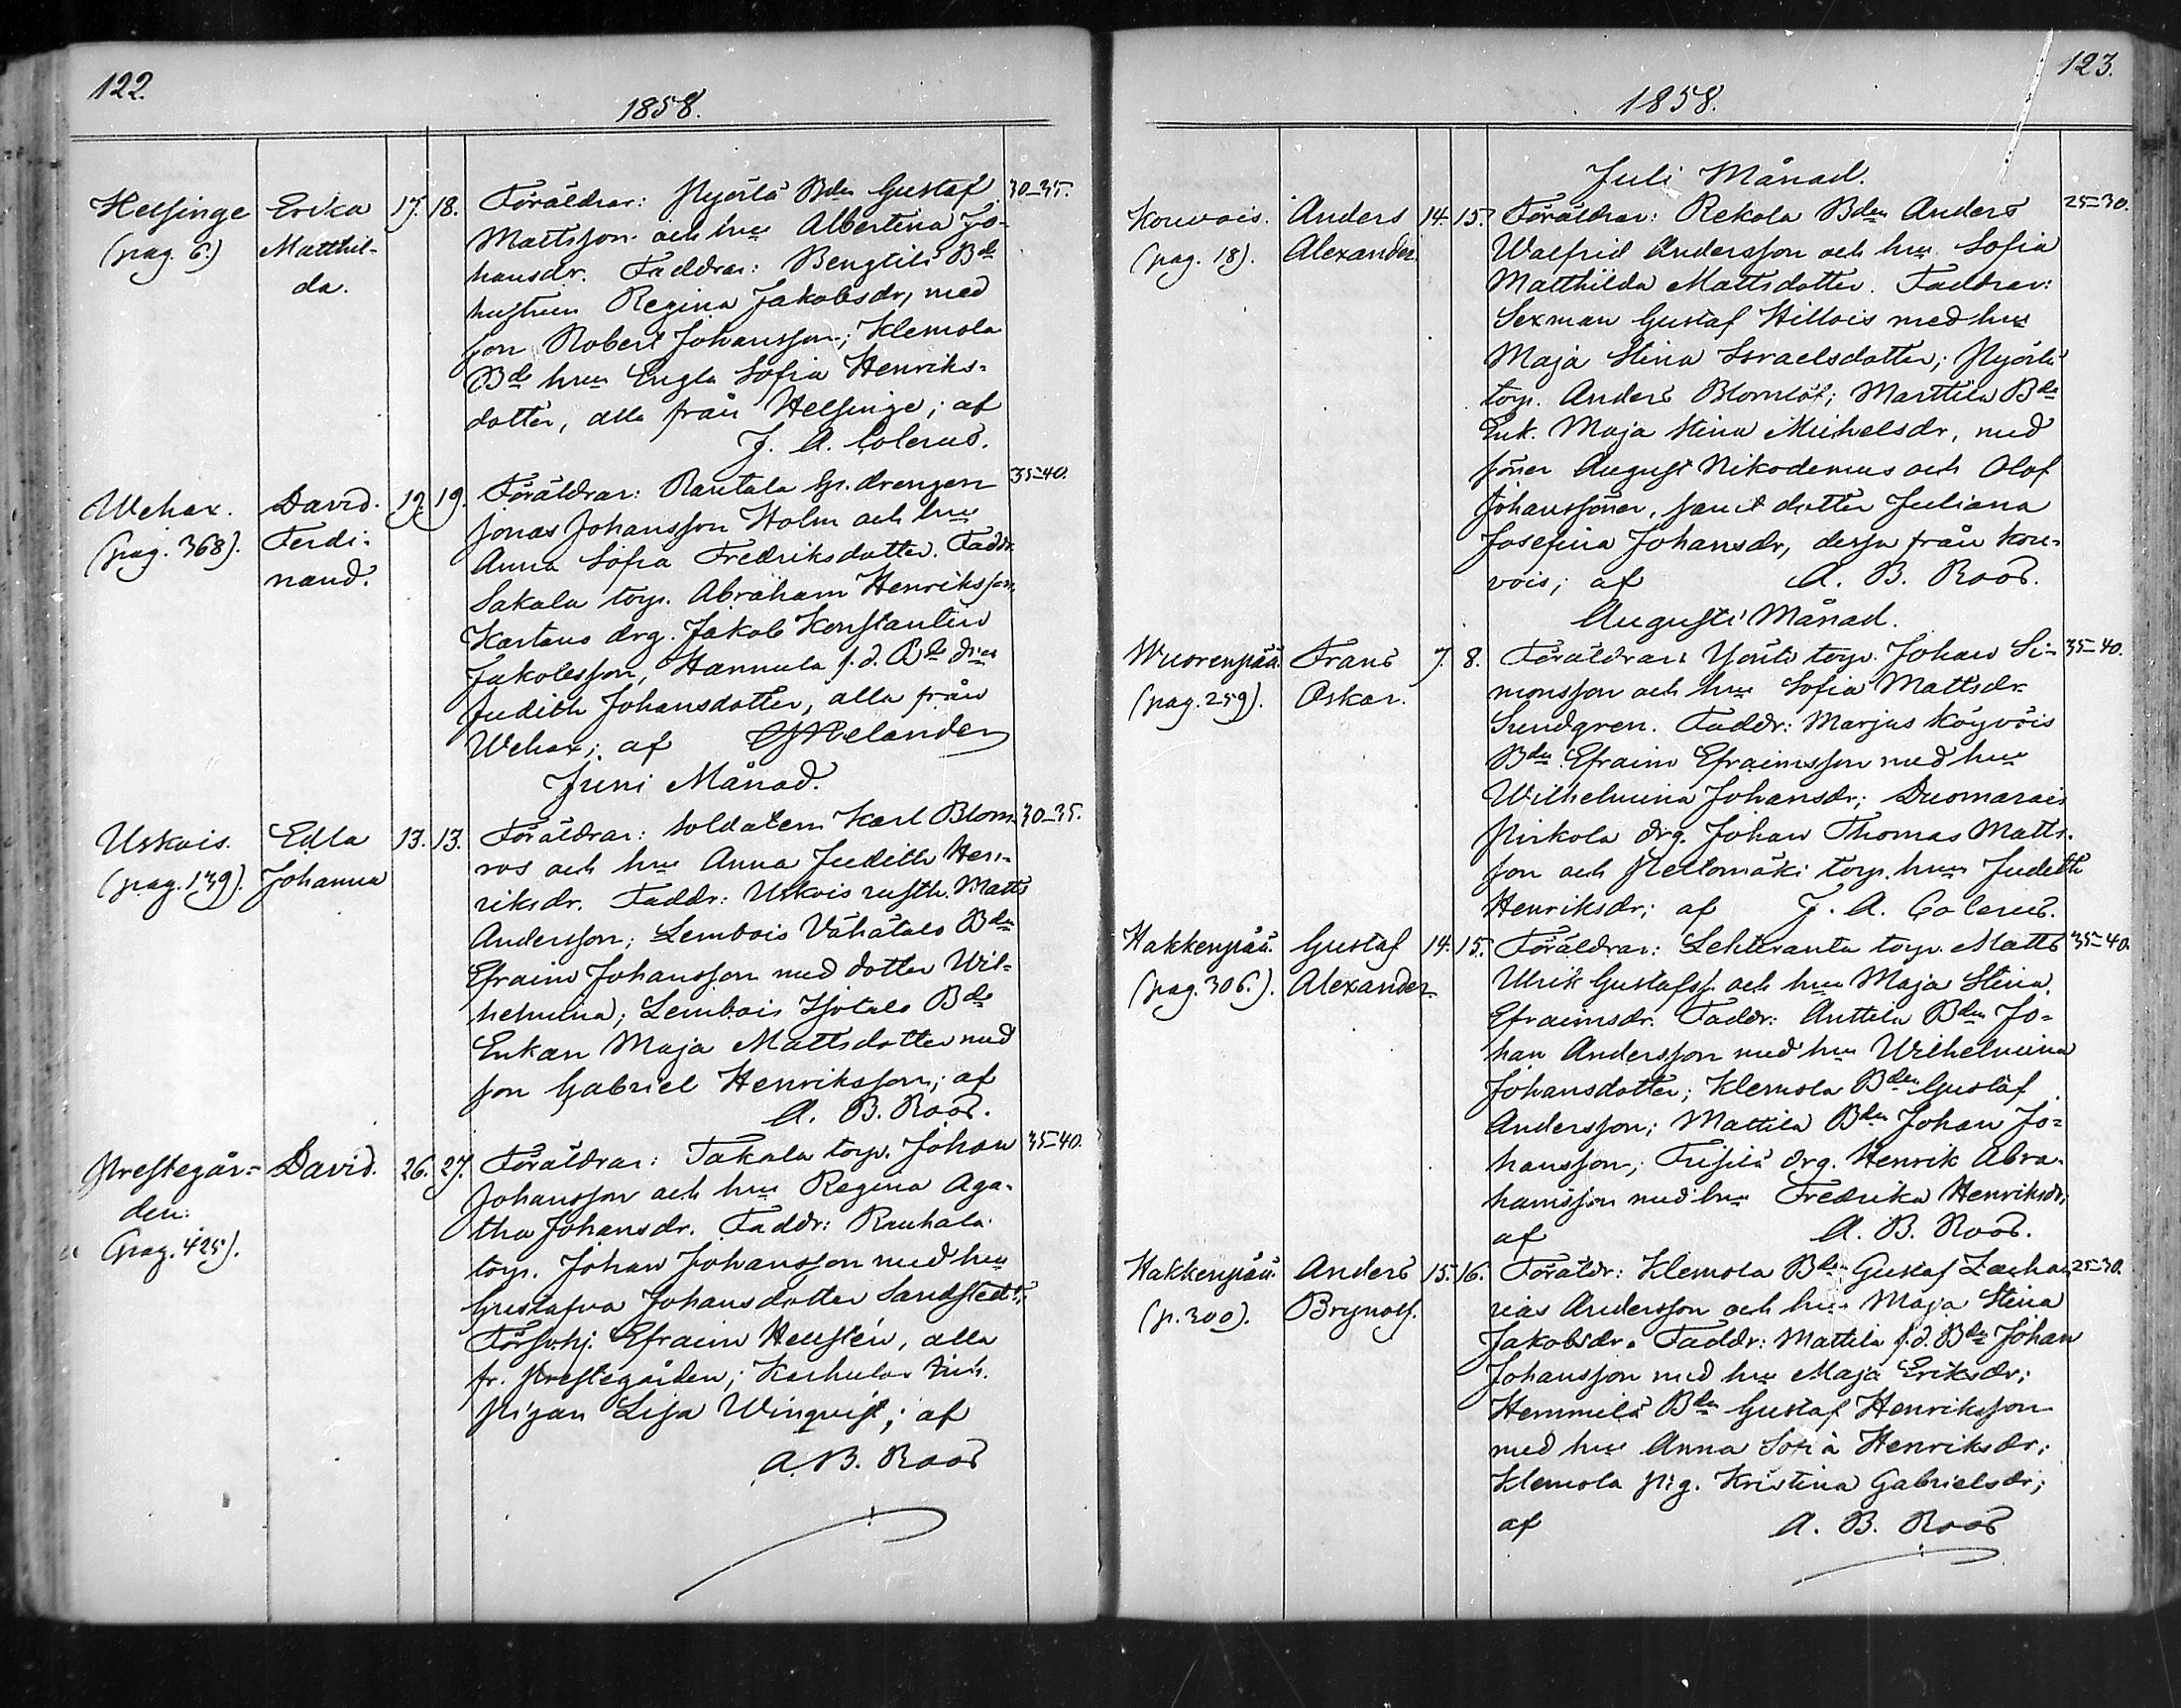 122.
1858.
Helsinge
(pag. 6.)
Erika
Matthil-
da.
17. 18.
Föräldrar: Pyörlä Bdn Gustaf
Mattsson och hru Albertina Jo-
hansdr. Faddrar: Bengtilä Bde
hustrun Regina Jakobsdr, med
son Robert Johansson; Klemola
Bde hrun Engla Sofia Henriks-
dotter, alla från Helsinge; af
J. A. Colerus.
30-35.
Wehax.
(pag. 368).
David
Ferdi-
nand.
19. 19.
Föräldrar: Rantala gr. drengen
Jonas Johansson Holm och hru
Anna Sofia Fredriksdotter. Faddr.
Sakala torp. Abraham Henriksson,
Kartano drg. Jakob Konstantin
Jakobsson, Hannula f. d. Bde
Judith Johansdotter, alla från
Wehax; af Melander
35-40.
Juni Månad.
Uskais.
(pag. 139).
Edla
Johanna
13. 13.
Föräldrar: Soldaten Karl Blom-
ros och hru Anna Judith Hen-
riksdr. Faddr: Uskois rusth. Matts
Andersson; Lembois Vähätalo Bdn
Efraim Johansson med dotter Wil-
helmina; Lembois Isotalo Bde
Enkan Maja Mattsdotter med
son Gabriel Henriksson; af
A. B. Roos.
30-35.
Prestegår-
den.
(pag. 425).
David.
26. 27.
Föräldrar: Takala torp. Johan
Johansson och hru Regina Aga-
tha Johansdr. Faddr: Rauhala
torp. Johan Johansson med hru
Gustafva Johansdotter Sandstedt;
Försvhj. Efraim Hellstén, alla
fr. Prestegården; Karhula
Pigan Lisa Winqvist; af
A. B. Roos
35-40.
123.
1858.
Juli Månad.
Kouvois.
(pag. 18).
Anders
Alexander.
14. 15.
Föräldrar: Rekola Bden Anders
Walfrid Andersson och hru Sofia
Matthilda Mattsdotter. Faddrar:
Sexman Gustaf Hillois med hru
Maja Stina Israelsdotter; Pyörlä
torp. Anders Blomlöf; Marttila Bde
Enk. Maja Stina Michelsdr, med
söner August Nikodemus och Olof
Johanssöner, samt dotter Juliana
Josefina Johansdr, dessa från Kou-
vois; af A. B. Roos.
25-30.
Augusti Månad.
Wuorenpää.
(pag. 259).
Frans
Oskar.
7. 8.
Föräldrar: torp. Johan Si-
monsson och hru Sofia Mattsdr
Sundgren. Faddr: Marjus Köyvöis
Bdn Efraim Efraimsson med hru
Wilhelmina Johansdr; Duomarais
Pirkola drg. Johan Thomas Matts-
son och Peltomäki torp. hru Judith
Henriksdr; af J. A. Colerus.
35-40.
Hakkenpää.
(pag. 306.).
Gustaf
Alexander.
14. 15.
Föräldrar: Lehtiranta torp. Matts
Ulrik Gustafss. och hru Maja Stina
Efraimsdr. Faddr: Anttila Bdn Jo-
han Andersson med hru Wilhelmina
Johansdotter; Klemola Bden Gustaf
Andersson; Mattila Bdn Johan Jo-
hansson; drg. Henrik Abra-
hamsson med hru Fredrika Henriksdr;
af A. B. Roos.
35-40.
Hakkenpää.
(p. 300).
Anders
Brynolf.
15. 16.
Föräldr: Klemola Bdn Gustaf Zacha-
rias Andersson och hru Maja Stina
Jakobsdr. Faddr: Mattila f. d. Bdn Johan
Johansson med hru Maja Eriksdr;
Hemmilä Bdn Gustaf Henriksson
med hru Anna Sofia Henriksdr;
Klemola pig. Kristina Gabrielsdr;
af A. B. Roos
25-30.